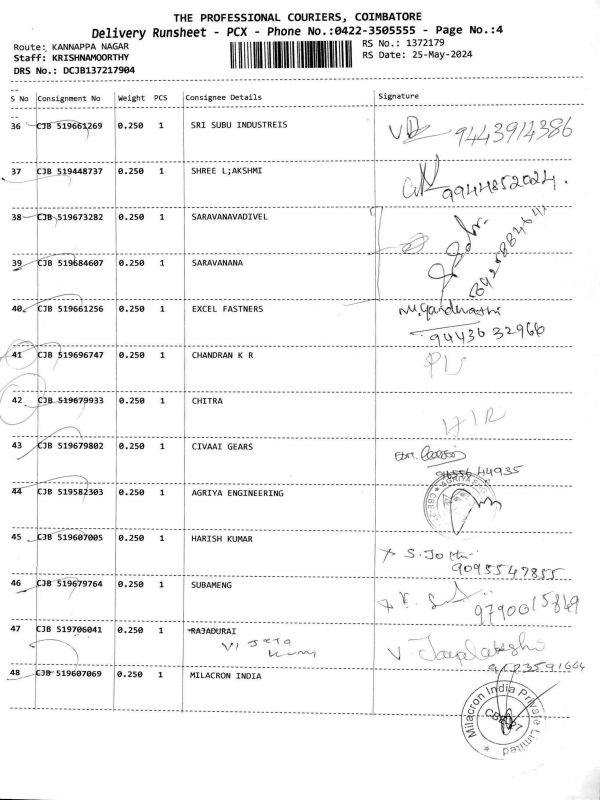 THE PROFESSIONAL COURIERS, COIMBATORE
Delivery Runsheet - PCX - Phone No.:0422-3505555 - Page No.:4
Route: KANNAPPA NAGAR
RS No.: 1372179
Staff: KRISHNAMOORTHY
RS Date: 25-May-2024
DRS No.: DCJB137217904
S No Consignment No Weight PCS Consignee Details Signature
36 CJB 519661269 0.250 1 SRI SUBU INDUSTREIS 9443914386
37 CJB 519448737 0.250 1 SHREE L;AKSHMI 9944852024.
38 CJB 519673282 0.250 1 SARAVANAVADIVEL
39 CJB 519684607 0.250 1 SARAVANANA
40 CJB 519661256 0.250 1 EXCEL FASTNERS
9443632966
41 CJB 519696747 0.250 1 CHANDRAN K R
42 CJB 519679933 0.250 1 CHITRA
43 CJB 519679802 0.250 1 CIVAAI GEARS
44 CJB 519582303 0.250 1 AGRIYA ENGINEERING
45 CJB 519607005 0.250 1 HARISH KUMAR
9095547855
46 CJB 519679764 0.250 1 SUBAMENG
9790015849
47 CJB 519706041 0.250 1 RAJADURAI
48 CJB 519607069 0.250 1 MILACRON INDIA
Milacron India Private Limited